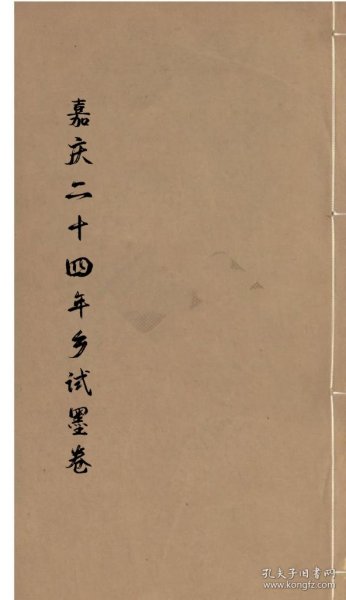 嘉庆二十四年乡试墨卷
孔夫子旧书网
www.kongfz.com